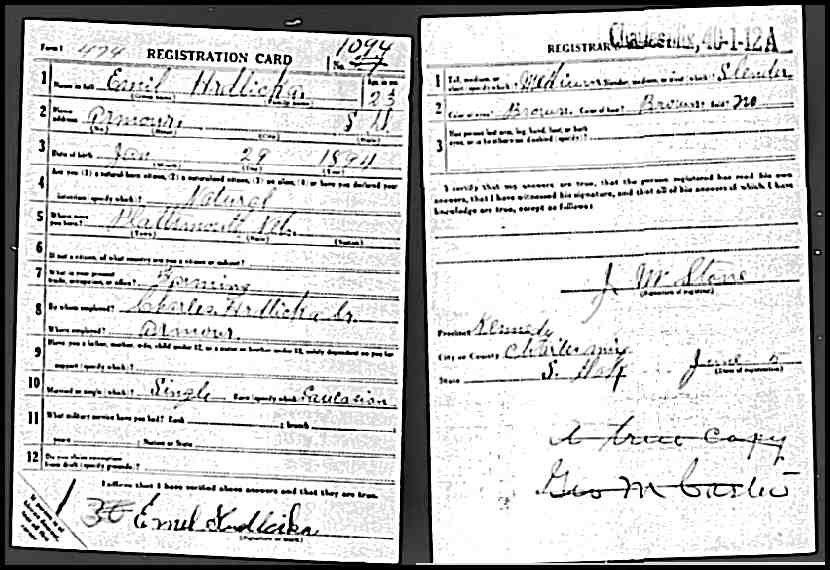 Form 1 474 REGISTRATION CARD 1094
No. 27
1 Name in full Emil Hrdlicka Age in yrs. 23
(Given name) (Family name)
2 Home address Armour, S D.
(No.) (Street) (City) (State)
3 Date of birth Jan 29 1894
(Month) (Day) (Year)
4 Are you (1) a natural born citizen, (2) a naturalized citizen, (3) an alien, (4) or have you declared your
intention (specify which)? Natural
5 Where were you born? Plattsmouth Neb.
(Town) (State) (Nation)
6 If not a citizen, of what country are you a citizen or subject?
7 What is your present trade, occupation, or office? Farming
8 By whom employed? Charles Hrdlicka Sr.
Where employed? Armour.
9 Have you a father, mother, wife, child under 12, or a sister or brother under 12, solely dependent on you for
support (specify which)?
10 Married or single (which)? Single Race (specify which)? Caucasion
11 What military service have you had? Rank ; branch ;
years ; Nation or State
12 Do you claim exemption from draft (specify grounds)?
I affirm that I have verified above answers and that they are true.
1 30 Emil Hrdlicka
(Signature or mark)
If person is of African descent, tear off this corner
REGISTRAR
40-1-12 A
1 Tall, medium, or short (specify which)? Medium Slender, medium, or stout (which)? Slender
2 Color of eyes? Brown Color of hair? Brown Bald? No
3 Has person lost arm, leg, hand, foot, or both eyes, or is he otherwise disabled (specify)?
I certify that my answers are true, that the person registered has read his own
answers, that I have witnessed his signature, and that all of his answers of which I have
knowledge are true, except as follows:
J W Stone
(Signature of registrar)
Precinct Kennedy
City or County Charles Mix
State S. Dak June 5
(Date of registration)
A true copy
Geo M